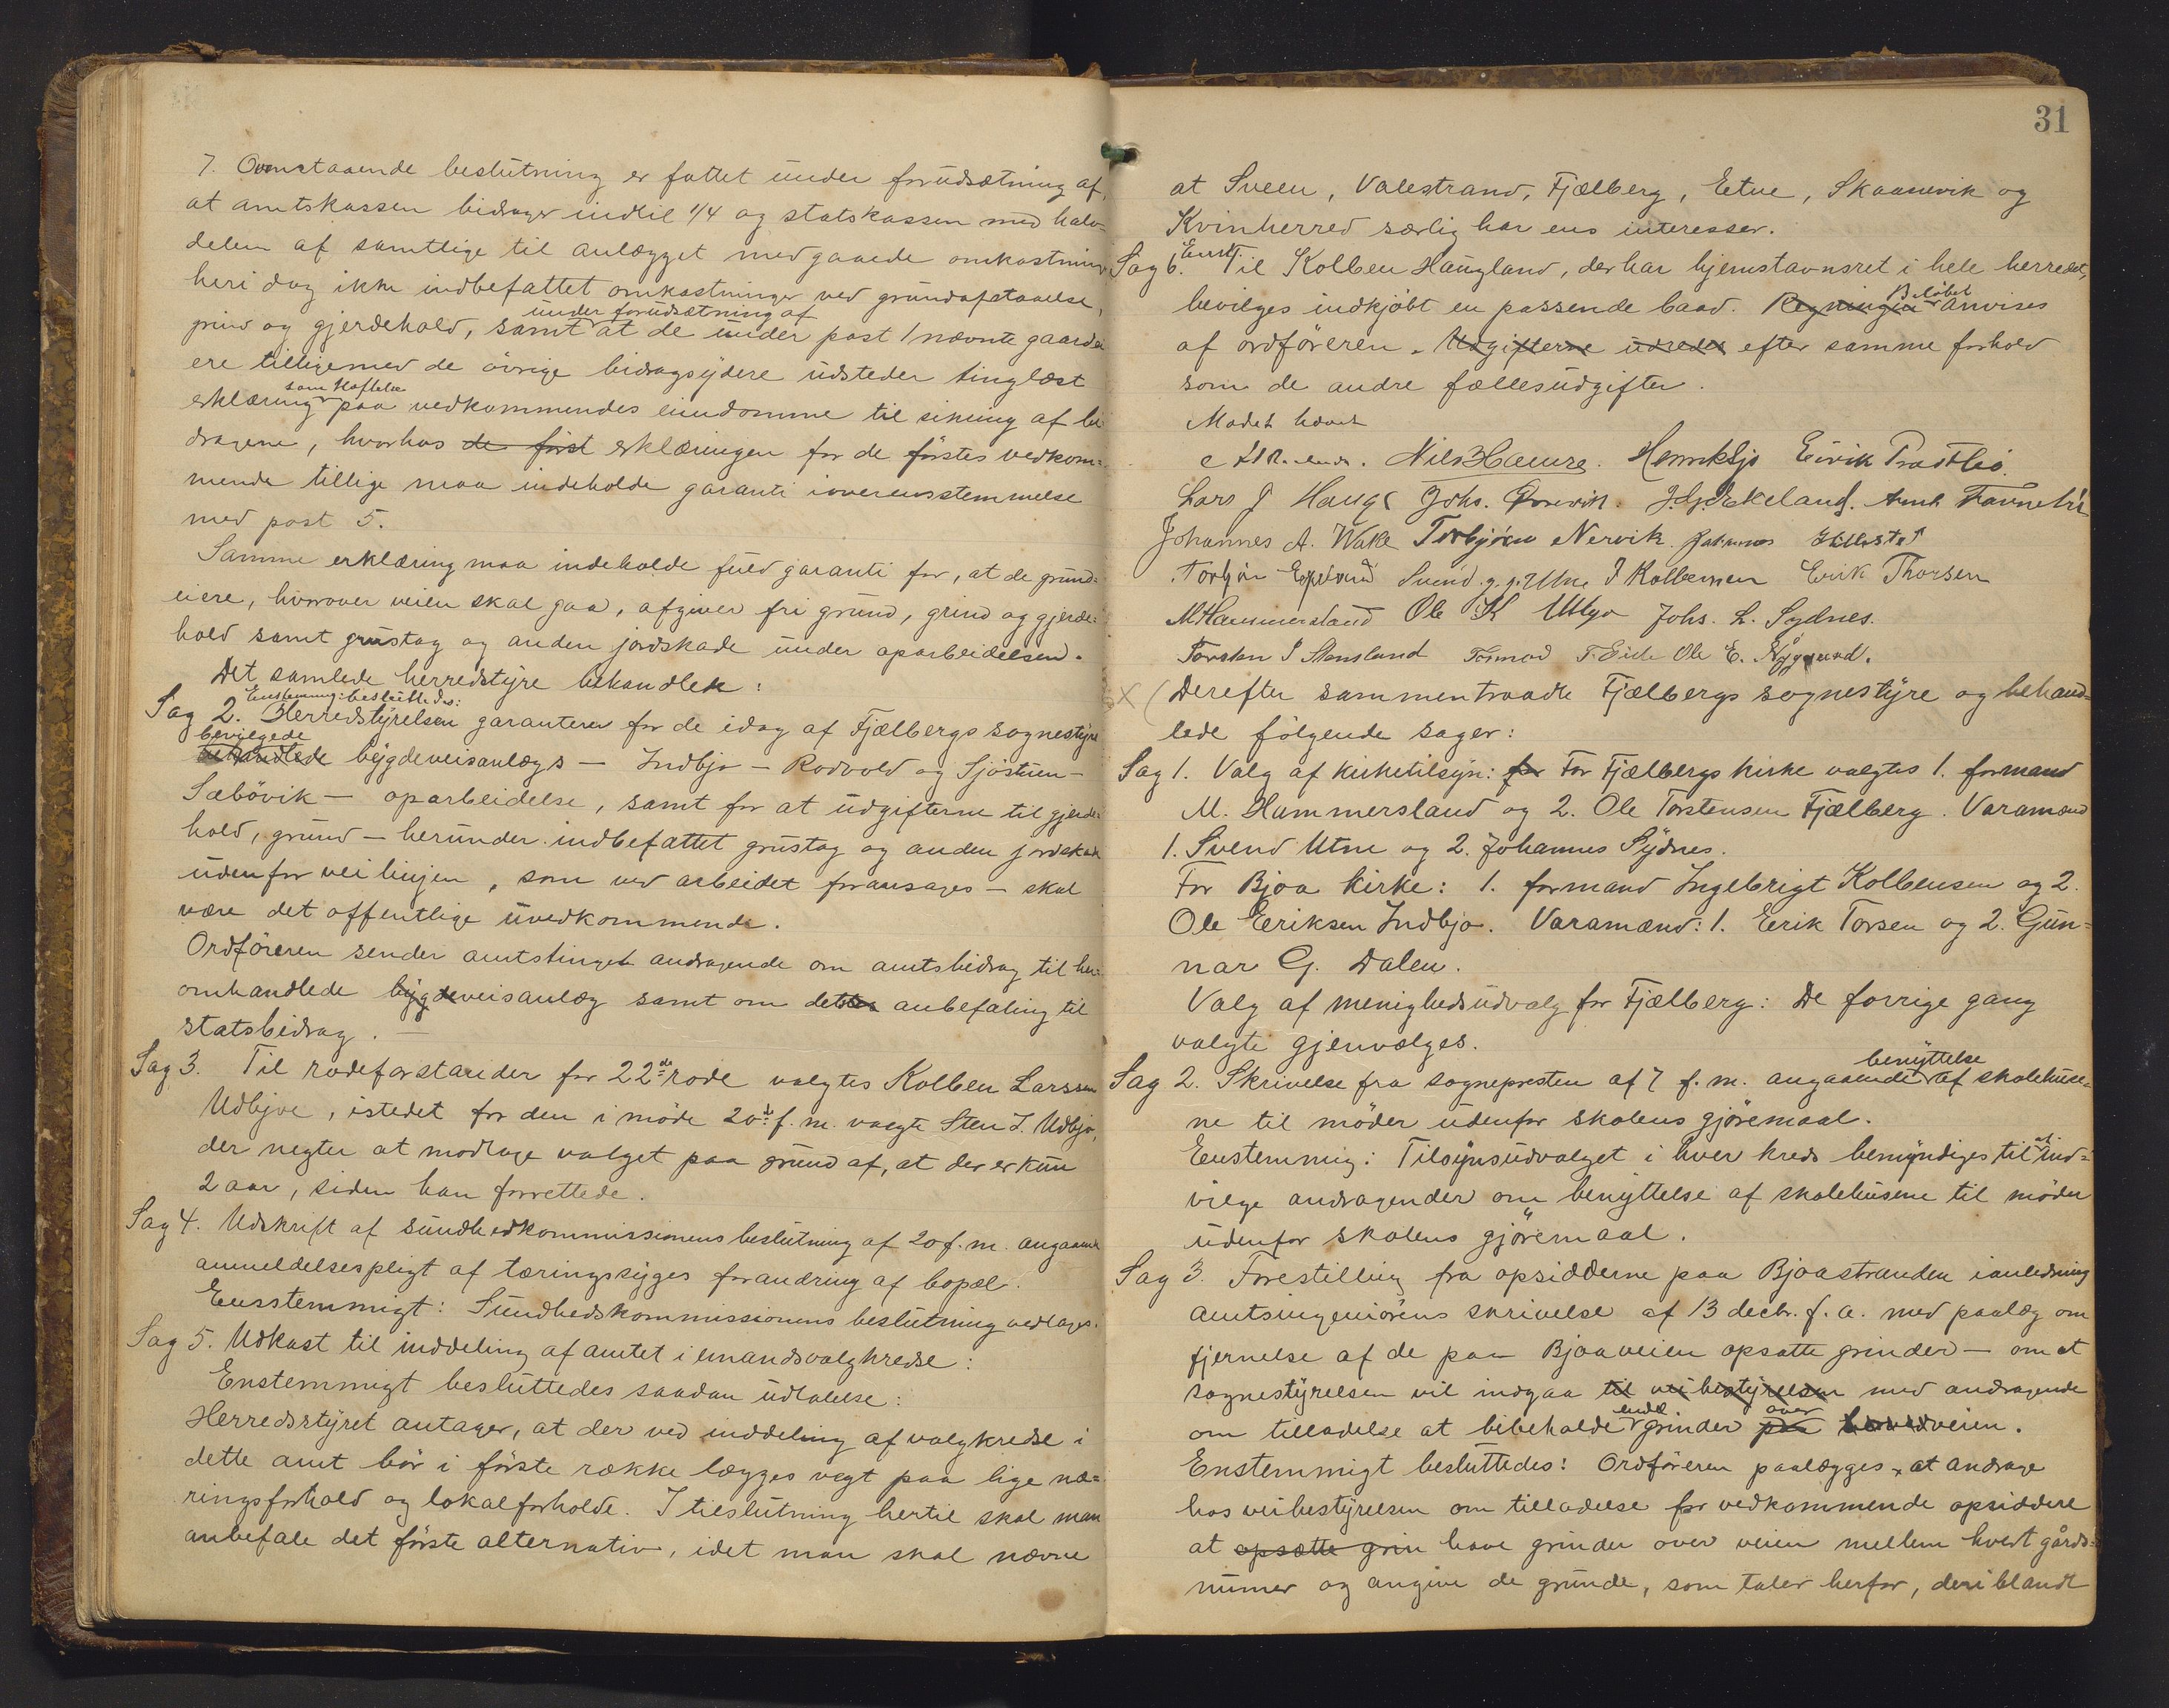 7. Ovenstaaende beslutning er fattet under forudsætning af,
at amtskassen bidrager indtil 1/4 og statskassen med halv-
delen af samtlige til anlægget medgaaede omkostninger
heri dog ikke indbefattet omkostninger ved grundafstaaelse,
under forudsætning af
grind og gjerdehold, samt at de under post 1 nævnte gaardei
ere tilligemed de øvrige bidragsydere udsteder tinglæst
som Heftelse
erklæring paa vedkommendes eiendomme til sikring af bi
dragene, hvorhos de först erklæringen for de förstes vedkom=
mende tillige maa indeholde garanti i overensstemmelse
med post 5.
Samme erklæring maa indeholde fuld garanti for, at de grund=
eiere, hvorover veien skal gaa, afgiver fri grund, grind og gjerde=
hold samt grustag og anden jordskade under oparbeidelsen.
Det samlede herredstyre behandlek:
Enstemmig besluttedes:
Sag 2. Herredstyrelsen garanterer for de idag af Fjælbergs sognestyre
bevilgede
behandlede bygdeveisanlægs — Indbjo — Rodvold og Sjöstuen —
Sæbövik — oparbeidelse, samt for at udgifterne til gjerde=
hold, grund — herunder indbefattet grustag og anden jordskade
udenfor veilinjen, som ved arbeidet foraarsages — skal
være det offentlige uvedkommende.
Ordföreren sender amtstinget andragende om amtsbidrag til her=
omhandlede bygdeveisanlæg samt om dettes anbefaling til
statsbidrag. —
Sag 3. Til rodeforstander for 22de rode valgtes Kolben Larssen
Udbjoe, istedet for den i möde 20de f. m. valgte Sten J. Udbjo,
der negter at modtage valget paa grund af, at der er kun
2 aar, siden han forrettede.
Sag 4. Udskrift af sundhedkommissionens beslutning af 20 f. m. angaaende
anmeldelsespligt af tæringssyges forandring af bopæl.
Eensstemmigt: Sundhedskommissionens beslutning vedtages.
Sag 5. Udkast til inddeling af amtet i enmandsvalgkredse:
Enstemmigt besluttedes saadan udtalelse:
Herredsstyret antager, at der ved inddeling af valgkredse i
dette amt bör i förste række lægges vegt paa lige næ=
ringsforhold og lokalforholde. I tilslutning hertil skal man
anbefale det förste alternativ, idet man skal nævne
31
at Sveen, Valestrand, Fjælberg, Etne, Skaanevik og
Kvinherred særlig har ens interesser.
Enst.
Sag 6. Til Kolben Haugland, der har hjemstavnsret i hele herredet,
Belöbet
bevilges indkjöbt en passende baad. Regningen anvises
af ordföreren. Udgifterne udredes efter samme forhold
som de andre fællesudgifter.
Mødet hævet
Nils Hamre. Henrik Sjo Eirik Tradthei
Lars J Hauge Johs. J. G. Økeland.
Johannes A. Wake Torbjörn Nervik. Johannes
Svend g. g. Utne I Kolbensen Eirik Thorsen
M Hammersland Ole Johs. L. Sydnes.
Torsten J Stensland Tormod T. Eide Ole E. Nygaard.
Derefter sammentraadte Fjælbergs sognestyre og behand=
lede fölgende sager:
Sag 1. Valg af kirketilsyn: for For Fjælbergs kirke valgtes 1. formand
M. Hammersland og 2. Ole Torstensen Fjælberg. Varamænd
1. Svend Utne og 2. Johannes Sydnes.
For Bjoa kirke: 1. formand Ingebrigt Kolbensen og 2.
Ole Eeriksen Indbjo. Varamænd: 1. Eerik Torsen og 2. Gun=
nar G. Dalen.
Valg af menighedsudvalg for Fjælberg: De forrige gang
valgte gjenvælges.
benyttelse
Sag 2. Skrivelse fra sognepresten af 7 f. m. angaaende af skolehuse=
ne til möder udenfor skolens gjöremaal.
at
Eenstemmig: Tilsynsudvalget i hver kreds bemyndiges til ind=
vilge andragender om benyttelse af skolehusene til möder
udenfor skolens gjöremaal.
Sag 3. Forestilling fra opsidderne paa Bjoastranden i anledning
amtsingeniörens skrivelse af 13 decbr. f. a. med paalæg om
fjernelse af de paa Bjoaveien opsatte grinder — om at
sognestyrelsen vil indgaa til veibestyrelsen med andragende
endel over
om tilladelse at bibeholde grinder paa hovedveien.
Enstemmigt besluttedes: Ordföreren paalægges at andrage
hos veibestyrelsen om tilladelse for vedkommende opsiddere
at opsætte grin have grinder over veien mellem hvert gårds=
numer og angive de grunde, som taler herfor, deriblandt